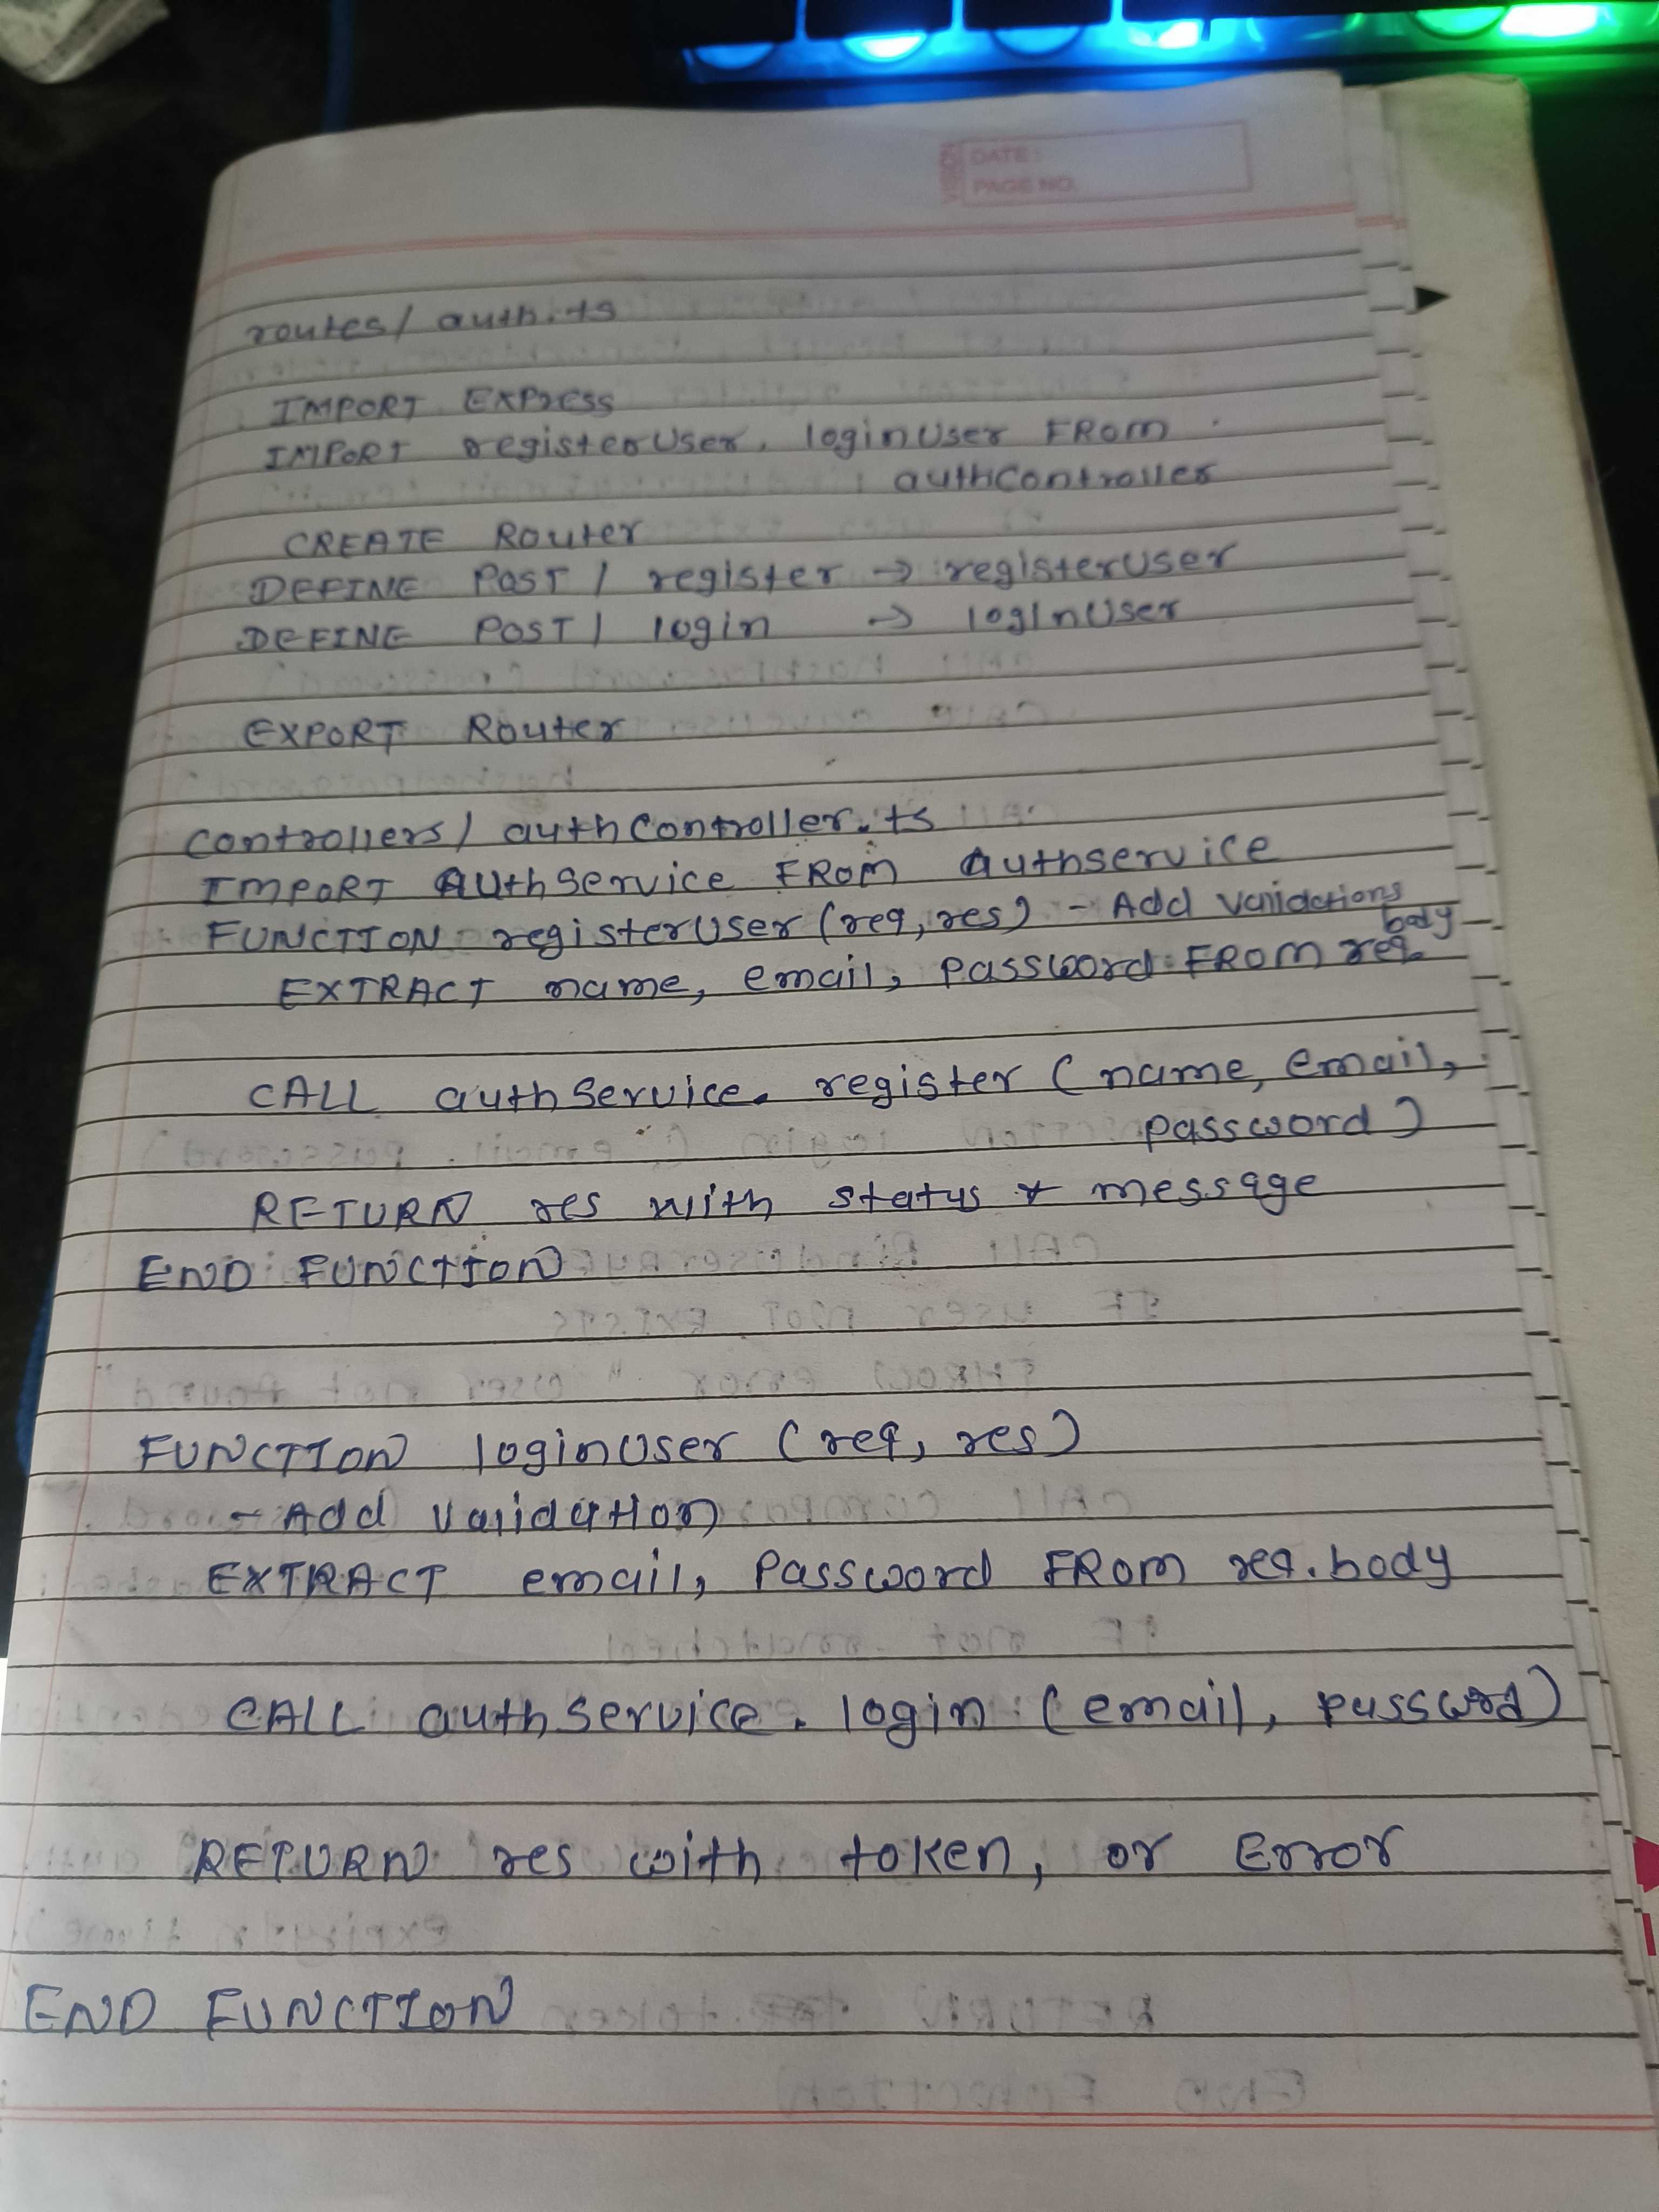 DATE:
PAGE NO.
routes/ auth.ts
IMPORT Express
IMPORT registerUser, loginUser FROM
authController
CREATE Router
DEFINE POST / register → registerUser
DEFINE POST / login → loginUser
EXPORT Router
controllers/ authController.ts
IMPORT AuthService FROM authservice
FUNCTION registerUser (req, res) - Add validations
body
EXTRACT name, email, password FROM req.
CALL authService. register ( name, email,
password )
RETURN res with status & message
END FUNCTION
FUNCTION loginUser (req, res)
- Add validation
EXTRACT email, Password FROM req. body
CALL authService. login (email, password)
RETURN res with token, or Error
END FUNCTION